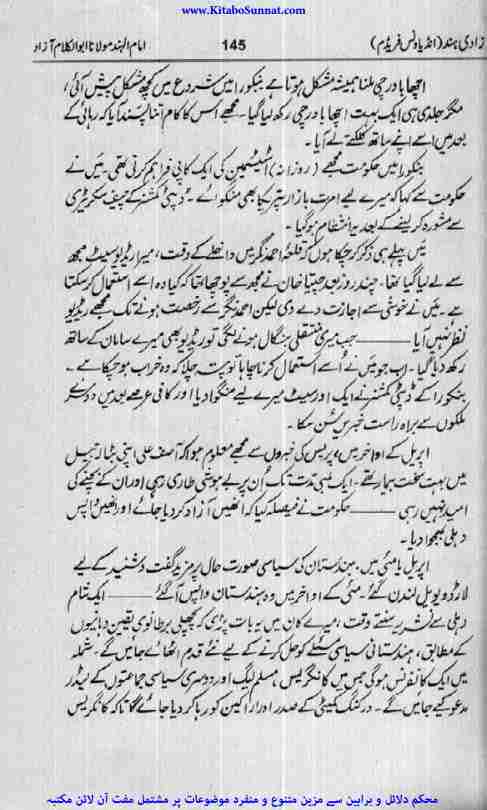 www.KitaboSunnat.com
زادی ہند (انڈیا ونس فریڈم) 145 امام الہند مولانا ابوالکلام آزاد
اچھا باورچی ملنا ہمیشہ مشکل ہوتا ہے بنکورا میں شروع میں کچھ مشکل پیش آئی،
مگر جلد ہی ایک بہت اچھا باورچی رکھ لیا گیا۔ مجھے اس کا کام اتنا پسند آیا کہ رہائی کے
بعد میں اسے اپنے ساتھ کلکتے لے آیا۔
بنکورا میں حکومت مجھے (روزانہ) اسٹیٹسمین کی ایک کاپی فراہم کرتی تھی۔ میں نے
حکومت سے کہا کہ میرے لیے امرت بازار پتریکا بھی منگوائے۔ ڈپٹی کمشنر کے چیف سکریٹری
سے مشورہ کر لینے کے بعد یہ انتظام ہو گیا۔
میں پہلے ہی ذکر کر چکا ہوں کہ قلعۂ احمد نگر میں داخلے کے وقت، میرا ریڈیو سیٹ مجھ
سے لے لیا گیا تھا۔ چند روز بعد چیتا خان نے مجھ سے پوچھا تھا کہ کیا وہ اسے استعمال کر سکتا
ہے۔ میں نے خوشی سے اجازت دے دی لیکن احمد نگر سے رخصت ہونے تک مجھے ریڈیو
نظر نہیں آیا ——— جب میری منتقلی بنگال ہونے لگی تو ریڈیو بھی میرے سامان کے ساتھ
رکھ دیا گیا۔ اب جو میں نے اُسے استعمال کرنا چاہا تو پتہ چلا کہ وہ خراب ہو چکا ہے۔
بنکورا کے ڈپٹی کمشنر نے ایک اور سیٹ میرے لیے منگوا دیا اور کافی عرصے بعد میں دوسرے
ملکوں سے براہ راست خبریں سُن سکا۔
اپریل کے اواخر میں، پریس کی خبروں سے مجھے معلوم ہوا کہ آصف علی اپنی بٹالہ جیل
میں بہت سخت بیمار تھے۔ ایک لمبی مدت تک اُن پر بے ہوشی طاری رہی اور ان کے بچنے کی
امید نہیں رہی ——— حکومت نے فیصلہ کیا کہ انھیں آزاد کر دیا جائے اور انھیں واپس
دہلی بھجوا دیا۔
اپریل یا مئی میں، ہندستان کی سیاسی صورت حال پر مزید گفت و شنید کے لیے
لارڈ ویویل لندن گئے۔ مئی کے اواخر میں وہ ہندستان واپس آگئے ——— ایک شام
دہلی سے نشریہ سنتے وقت، میرے کان میں یہ بات پڑی کہ پچھلی برطانوی یقین دہانیوں
کے مطابق، ہندستانی سیاسی مسئلے کو حل کرنے کے لیے نئے قدم اٹھائے جائیں گے۔ شملہ
میں ایک کانفرنس ہوگی جس میں کانگریس، مسلم لیگ اور دوسری سیاسی جماعتوں کے لیڈر
مدعو کیے جائیں گے۔ ورکنگ کمیٹی کے صدر اور اراکین کو رہا کر دیا جائے گا تاکہ کانگریس
محکم دلائل و براہین سے مزین متنوع و منفرد موضوعات پر مشتمل مفت آن لائن مکتبہ